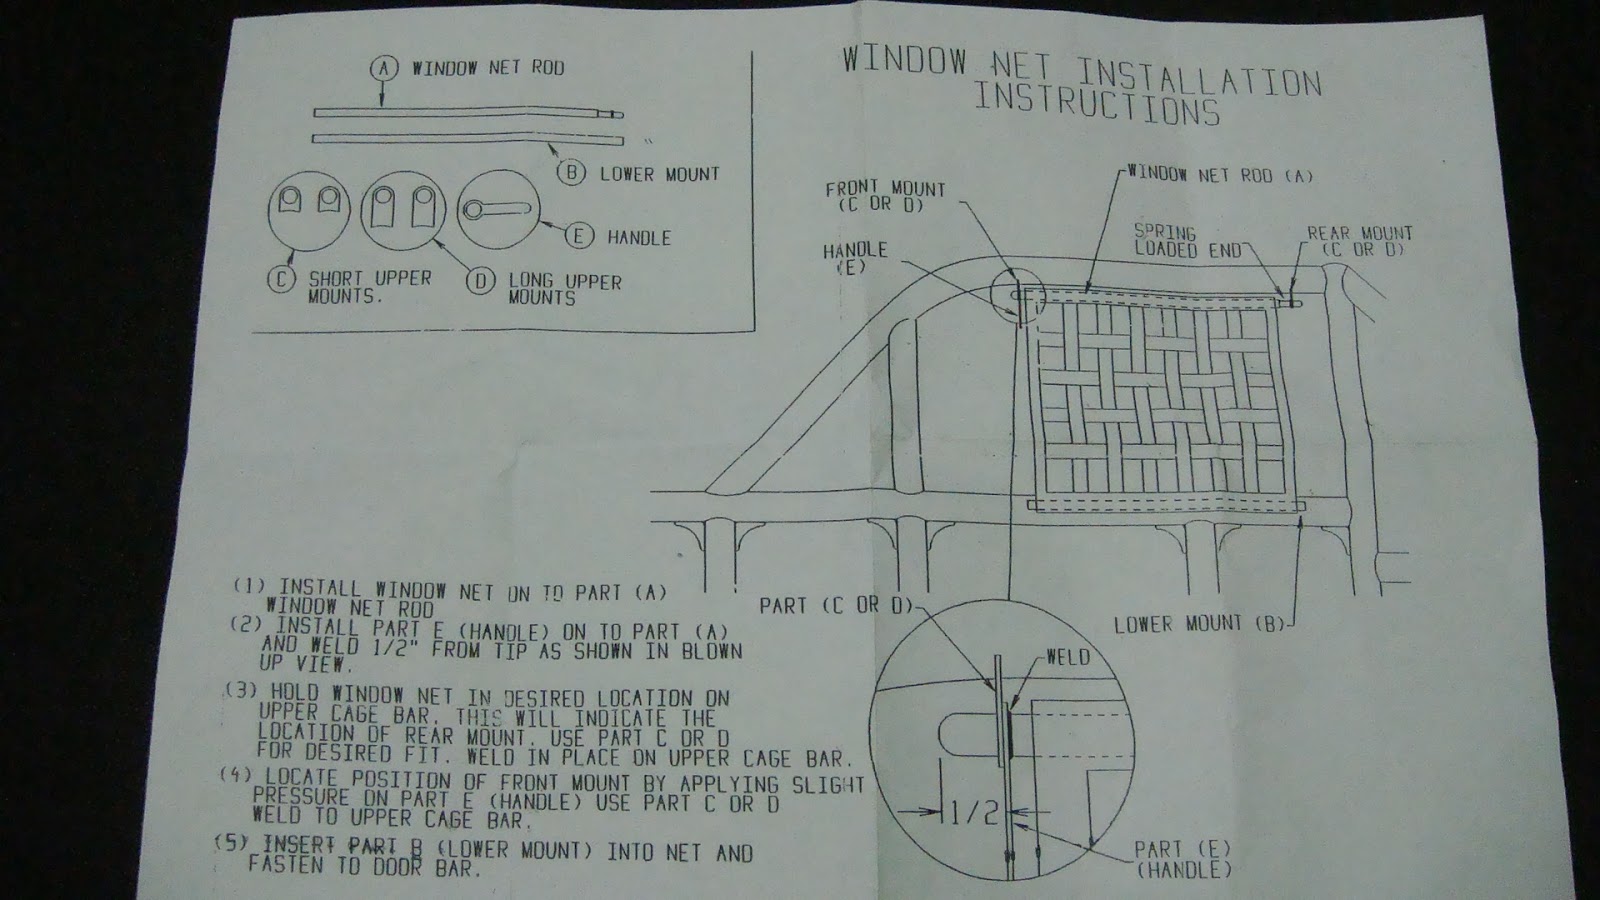 WINDOW NET INSTALLATION
INSTRUCTIONS
A WINDOW NET ROD
B LOWER MOUNT
E HANDLE
C SHORT UPPER
MOUNTS.
D LONG UPPER
MOUNTS
WINDOW NET ROD (A)
FRONT MOUNT
(C OR D)
HANDLE
(E)
SPRING
LOADED END
REAR MOUNT
(C OR D)
(1) INSTALL WINDOW NET ON TO PART (A)
WINDOW NET ROD
(2) INSTALL PART E (HANDLE) ON TO PART (A)
AND WELD 1/2" FROM TIP AS SHOWN IN BLOWN
UP VIEW.
(3) HOLD WINDOW NET IN DESIRED LOCATION ON
UPPER CAGE BAR. THIS WILL INDICATE THE
LOCATION OF REAR MOUNT. USE PART C OR D
FOR DESIRED FIT. WELD IN PLACE ON UPPER CAGE BAR.
(4) LOCATE POSITION OF FRONT MOUNT BY APPLYING SLIGHT
PRESSURE ON PART E (HANDLE) USE PART C OR D
WELD TO UPPER CAGE BAR.
(5) INSERT PART B (LOWER MOUNT) INTO NET AND
FASTEN TO DOOR BAR.
PART (C OR D)
LOWER MOUNT (B)
WELD
1/2
PART (E)
(HANDLE)